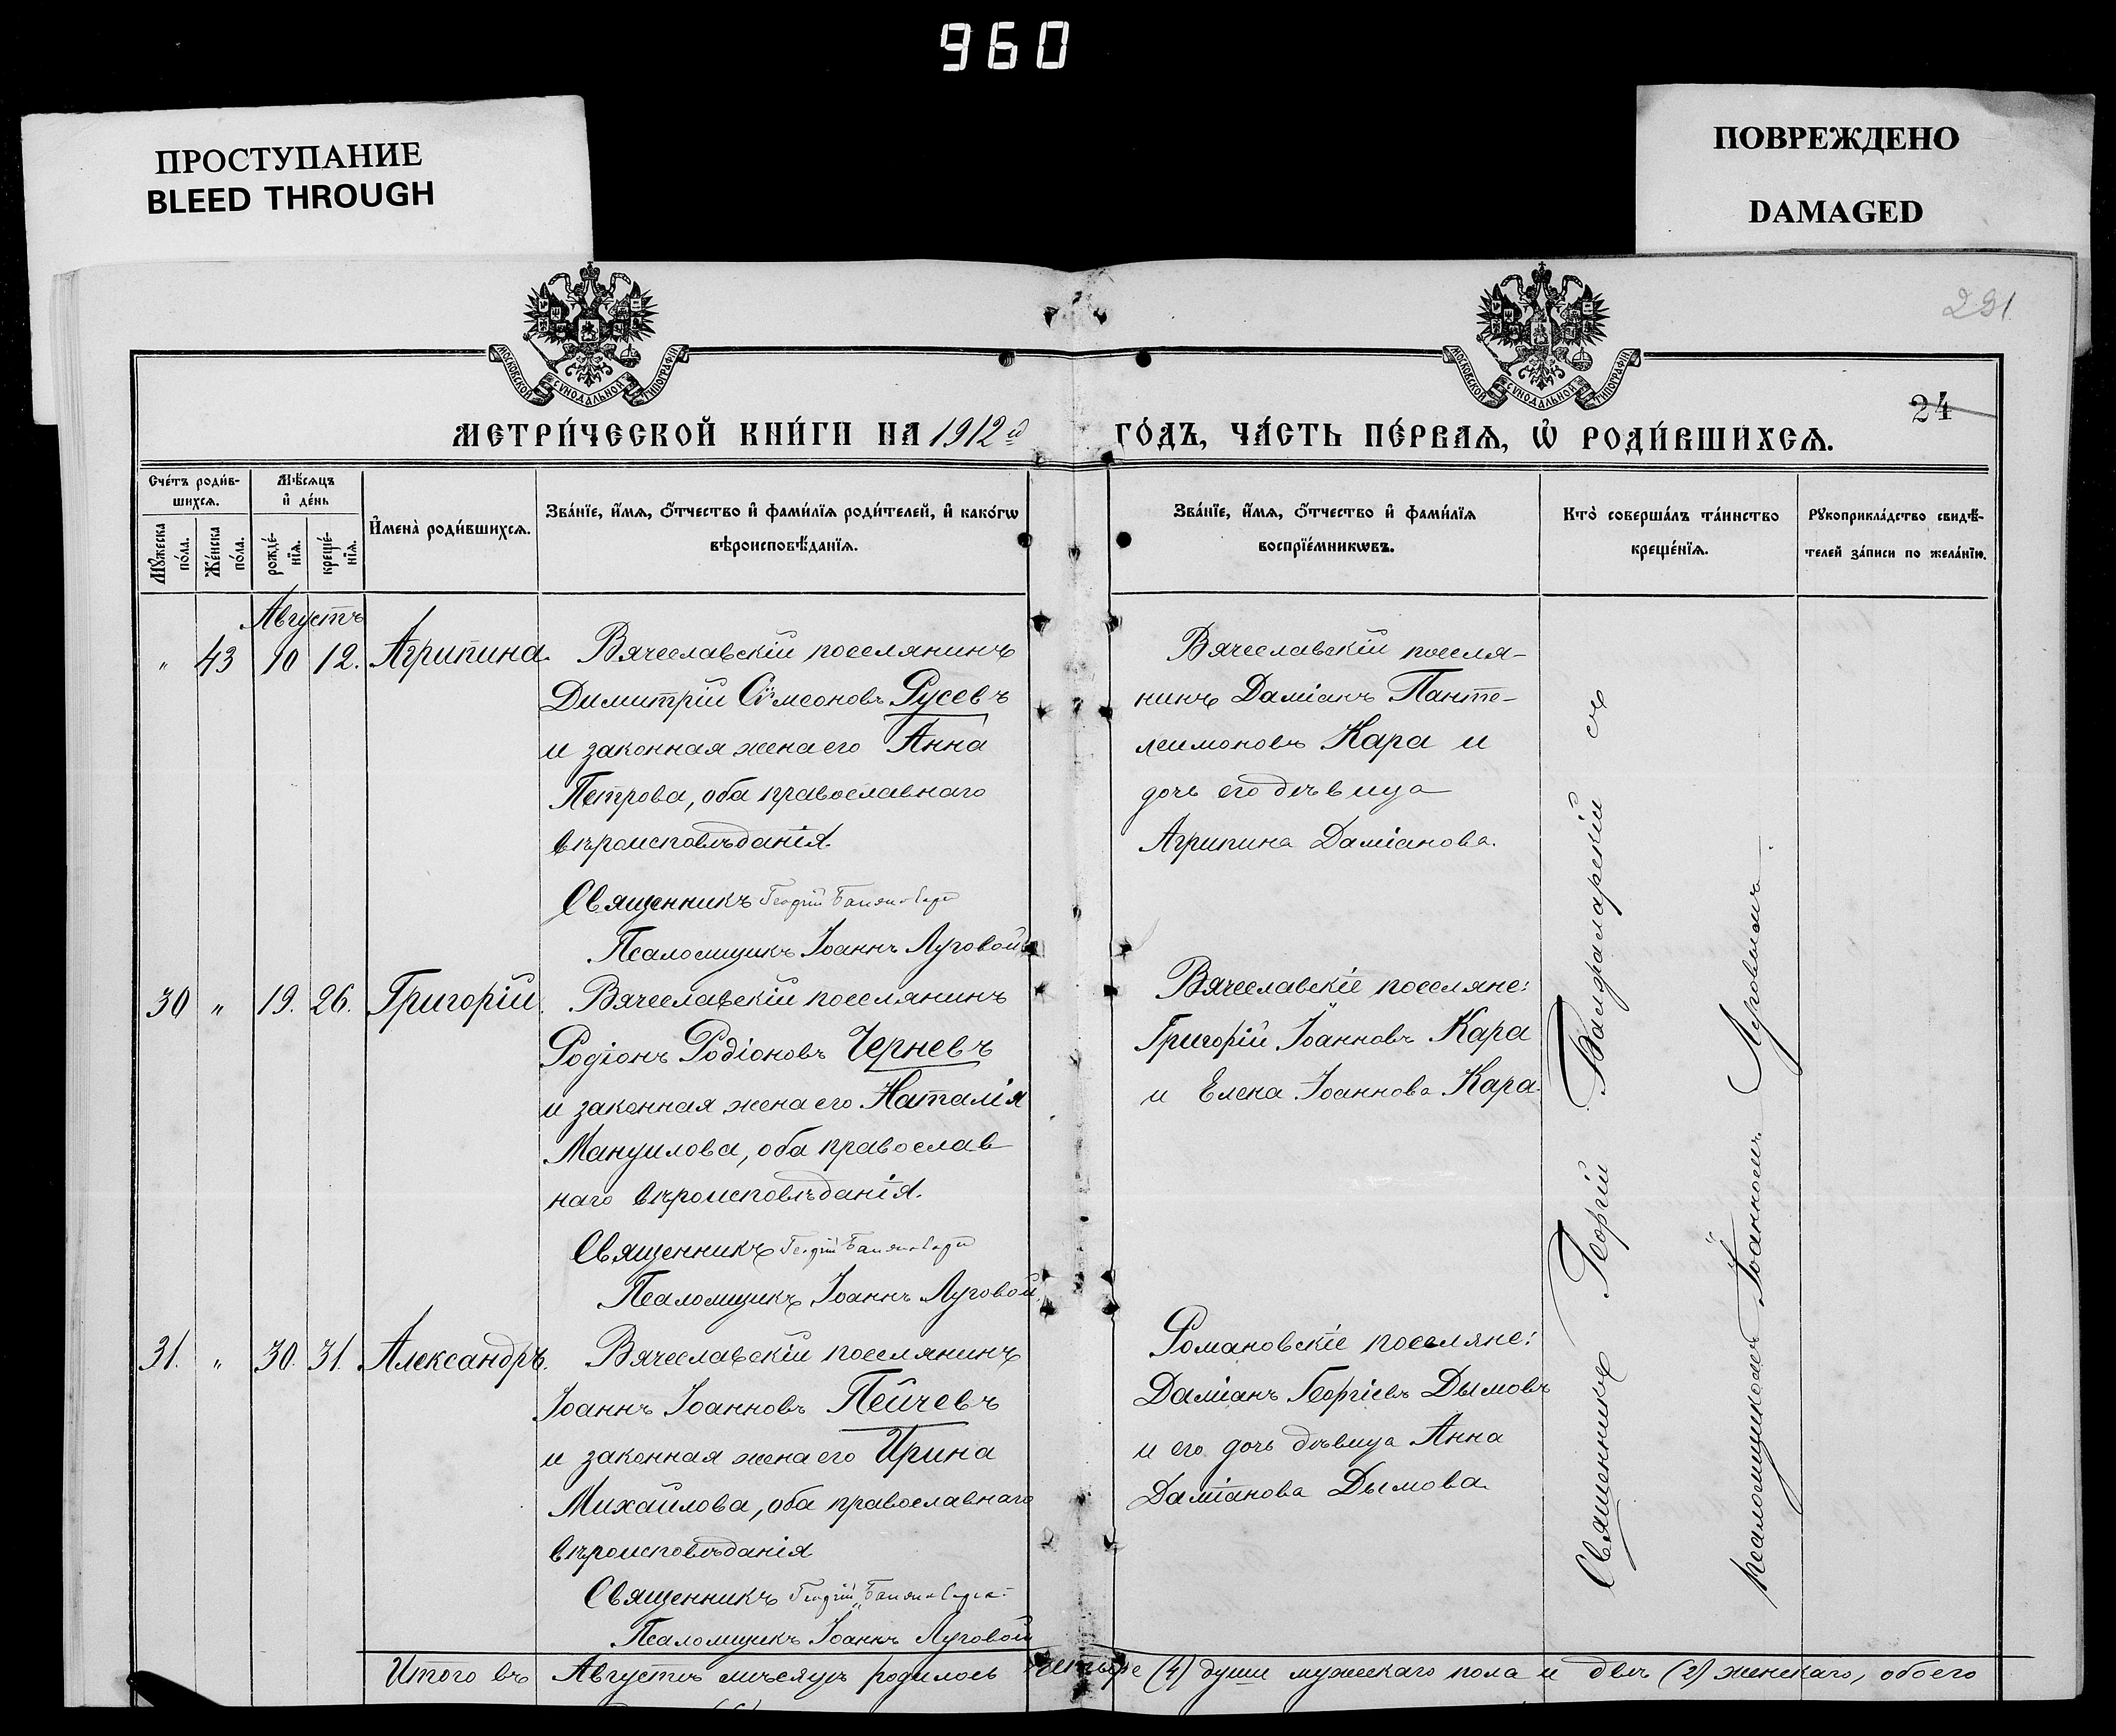 960
ПРОСТУПАНИЕ
BLEED THROUGH
ПОВРЕЖДЕНО
DAMAGED
МОСКОВСКОЙ СѴНОДАЛЬНОЙ ТИПОГРАФІИ
МОСКОВСКОЙ СѴНОДАЛЬНОЙ ТИПОГРАФІИ
291
24
МЕТРИ́ЧЕСКОЙ КНИ́ГИ НА 1912й ГО́ДЪ, ЧА́СТЬ ПЕ́РВАѦ, Ѡ РОДИ́ВШИХСѦ.
Сче́тъ роди́в-
шихсѧ.
Мꙋ́жеска
по́ла.
Же́нска
по́ла.
Мѣ́сѧцъ
и҆ де́нь
рожде́-
нїѧ.
креще́-
нїѧ.
И҆мена̀ роди́вшихсѧ.
Зва́нїе, и҆́мѧ, ѻ҆́тчество и҆ фами́лїѧ роди́телей, и҆ како́гѡ
вѣроисповѣ́данїѧ.
Зва́нїе, и҆́мѧ, ѻ҆́тчество и҆ фами́лїѧ
воспрїе́мникѡвъ.
Кто̀ соверша́лъ та́инство
креще́нїѧ.
Рꙋкоприкла́дство свидѣ́-
телей за́писи по жела́нїю.
Августъ
" 43 10 12. Агрипина.
Вячеславскій поселянинъ
Димитрій Сѵмеоновъ Русевъ
и законная жена его Анна
Петрова, оба православнаго
вѣроисповѣданія.
Священникъ Георгій
Псаломщикъ Іоаннъ Луговой
Вячеславскій поселя-
нинъ Даміанъ Панте-
леимоновъ Кара и
дочь его дѣвица
Агрипина Даміанова.
30 " 19. 26. Григорій.
Вячеславскій поселянинъ
Родіонъ Родіоновъ Черневъ
и законная жена его Наталія
Мануилова, оба православ
наго вѣроисповѣданія.
Священникъ Георгій
Псаломщикъ Іоаннъ Луговой.
Вячеславскіе поселяне:
Григорій Іоанновъ Кара
и Елена Іоаннова Кара.
31. " 30. 31. Александръ.
Вячеславскій поселянинъ
Іоаннъ Іоанновъ Пейчевъ
и законная жена его Ирина
Михайлова, оба православнаго
вѣроисповѣданія
Священникъ Георгій
Псаломщикъ Іоаннъ Луговой
Романовскіе поселяне:
Даміанъ Георгіевъ Дымовъ
и его дочь дѣвица Анна
Даміанова Дымова.
Священникъ Георгій съ
псаломщикомъ Іоанномъ Луговымъ.
Итого въ Августѣ мѣсяцѣ родилось четыре (4) души мужескаго пола и двѣ (2) женскаго, обоего